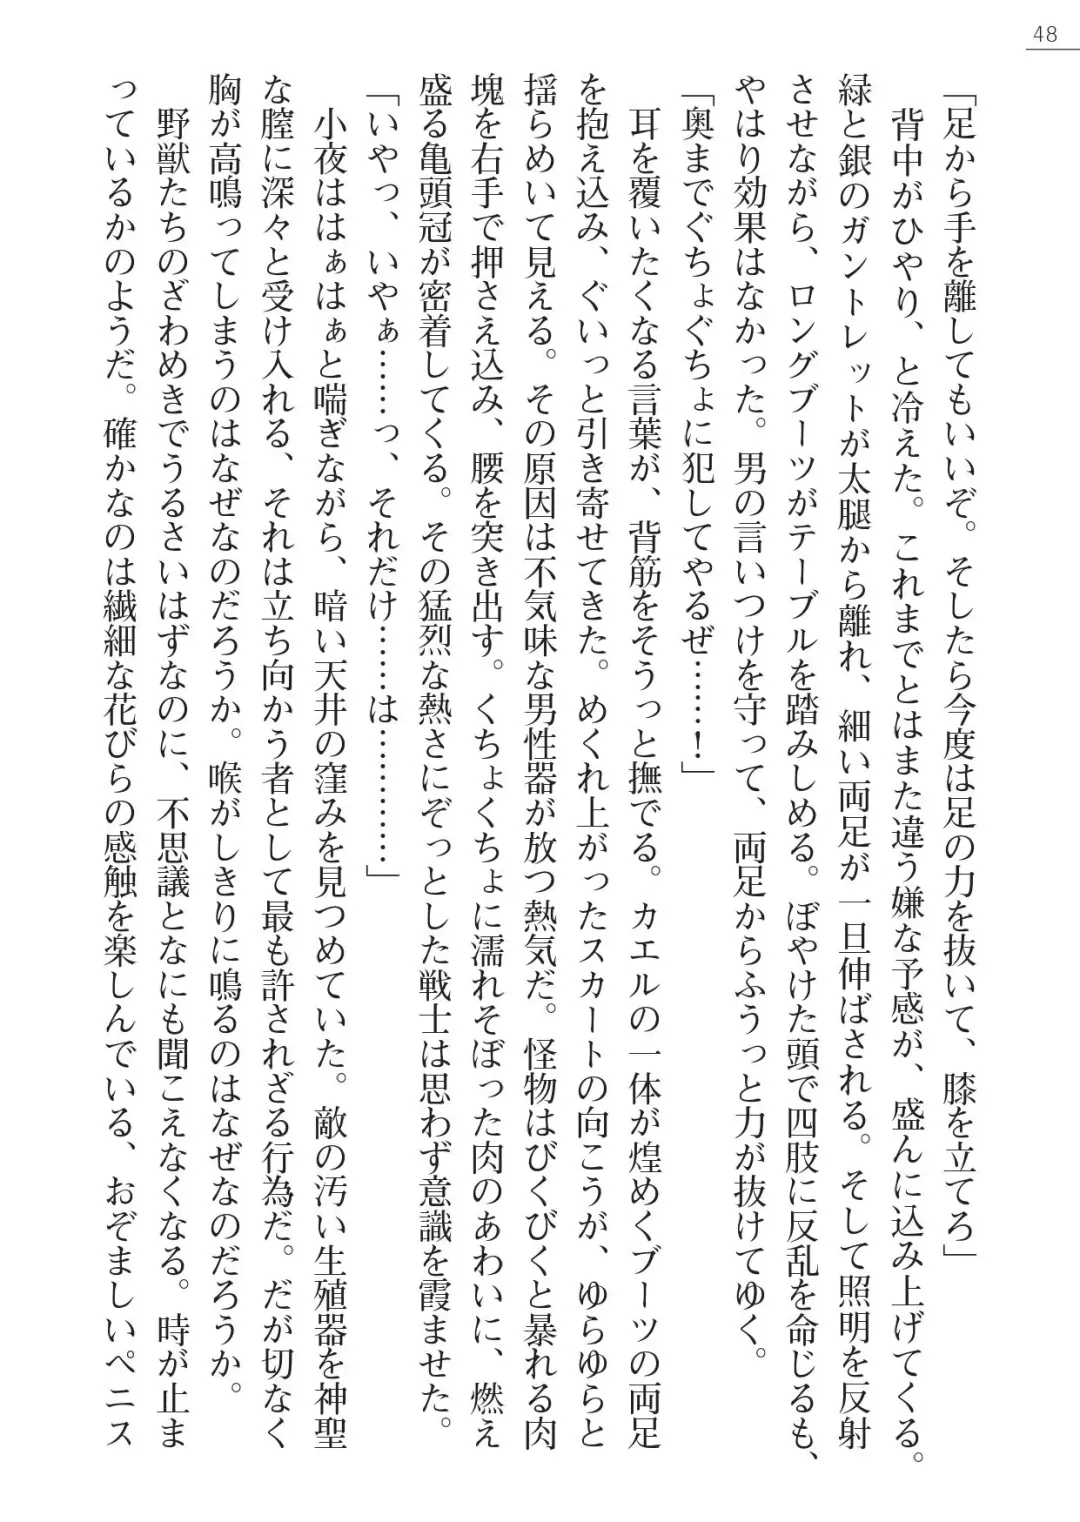 48
「足から手を離してもいいぞ。そしたら今度は足の力を抜いて、膝を立てろ」
背中がひやり、と冷えた。これまでとはまた違う嫌な予感が、盛んに込み上げてくる。
緑と銀のガントレットが太腿から離れ、細い両足が一旦伸ばされる。そして照明を反射
させながら、ロングブーツがテーブルを踏みしめる。ぼやけた頭で四肢に反乱を命じるも、
やはり効果はなかった。男の言いつけを守って、両足からふうっと力が抜けてゆく。
「奥までぐちょぐちょに犯してやるぜ……！」
耳を覆いたくなる言葉が、背筋をそうっと撫でる。カエルの一体が煌めくブーツの両足
を抱え込み、ぐいっと引き寄せてきた。めくれ上がったスカートの向こうが、ゆらゆらと
揺らめいて見える。その原因は不気味な男性器が放つ熱気だ。怪物はびくびくと暴れる肉
塊を右手で押さえ込み、腰を突き出す。くちょくちょに濡れそぼった肉のあわいに、燃え
盛る亀頭冠が密着してくる。その猛烈な熱さにぞっとした戦士は思わず意識を霞ませた。
「いやっ、いやぁ……っ、それだけ……は…………」
小夜ははぁはぁと喘ぎながら、暗い天井の窪みを見つめていた。敵の汚い生殖器を神聖
な膣に深々と受け入れる、それは立ち向かう者として最も許されざる行為だ。だが切なく
胸が高鳴ってしまうのはなぜなのだろうか。喉がしきりに鳴るのはなぜなのだろうか。
野獣たちのざわめきでうるさいはずなのに、不思議となにも聞こえなくなる。時が止ま
っているかのようだ。確かなのは繊細な花びらの感触を楽しんでいる、おぞましいペニス